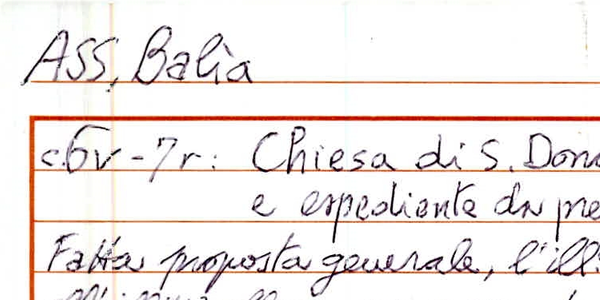 ASS, Balìa
c. 6v - 7r: Chiesa di S. Don
e espediente da pre
Fatta proposta generale, l'ill